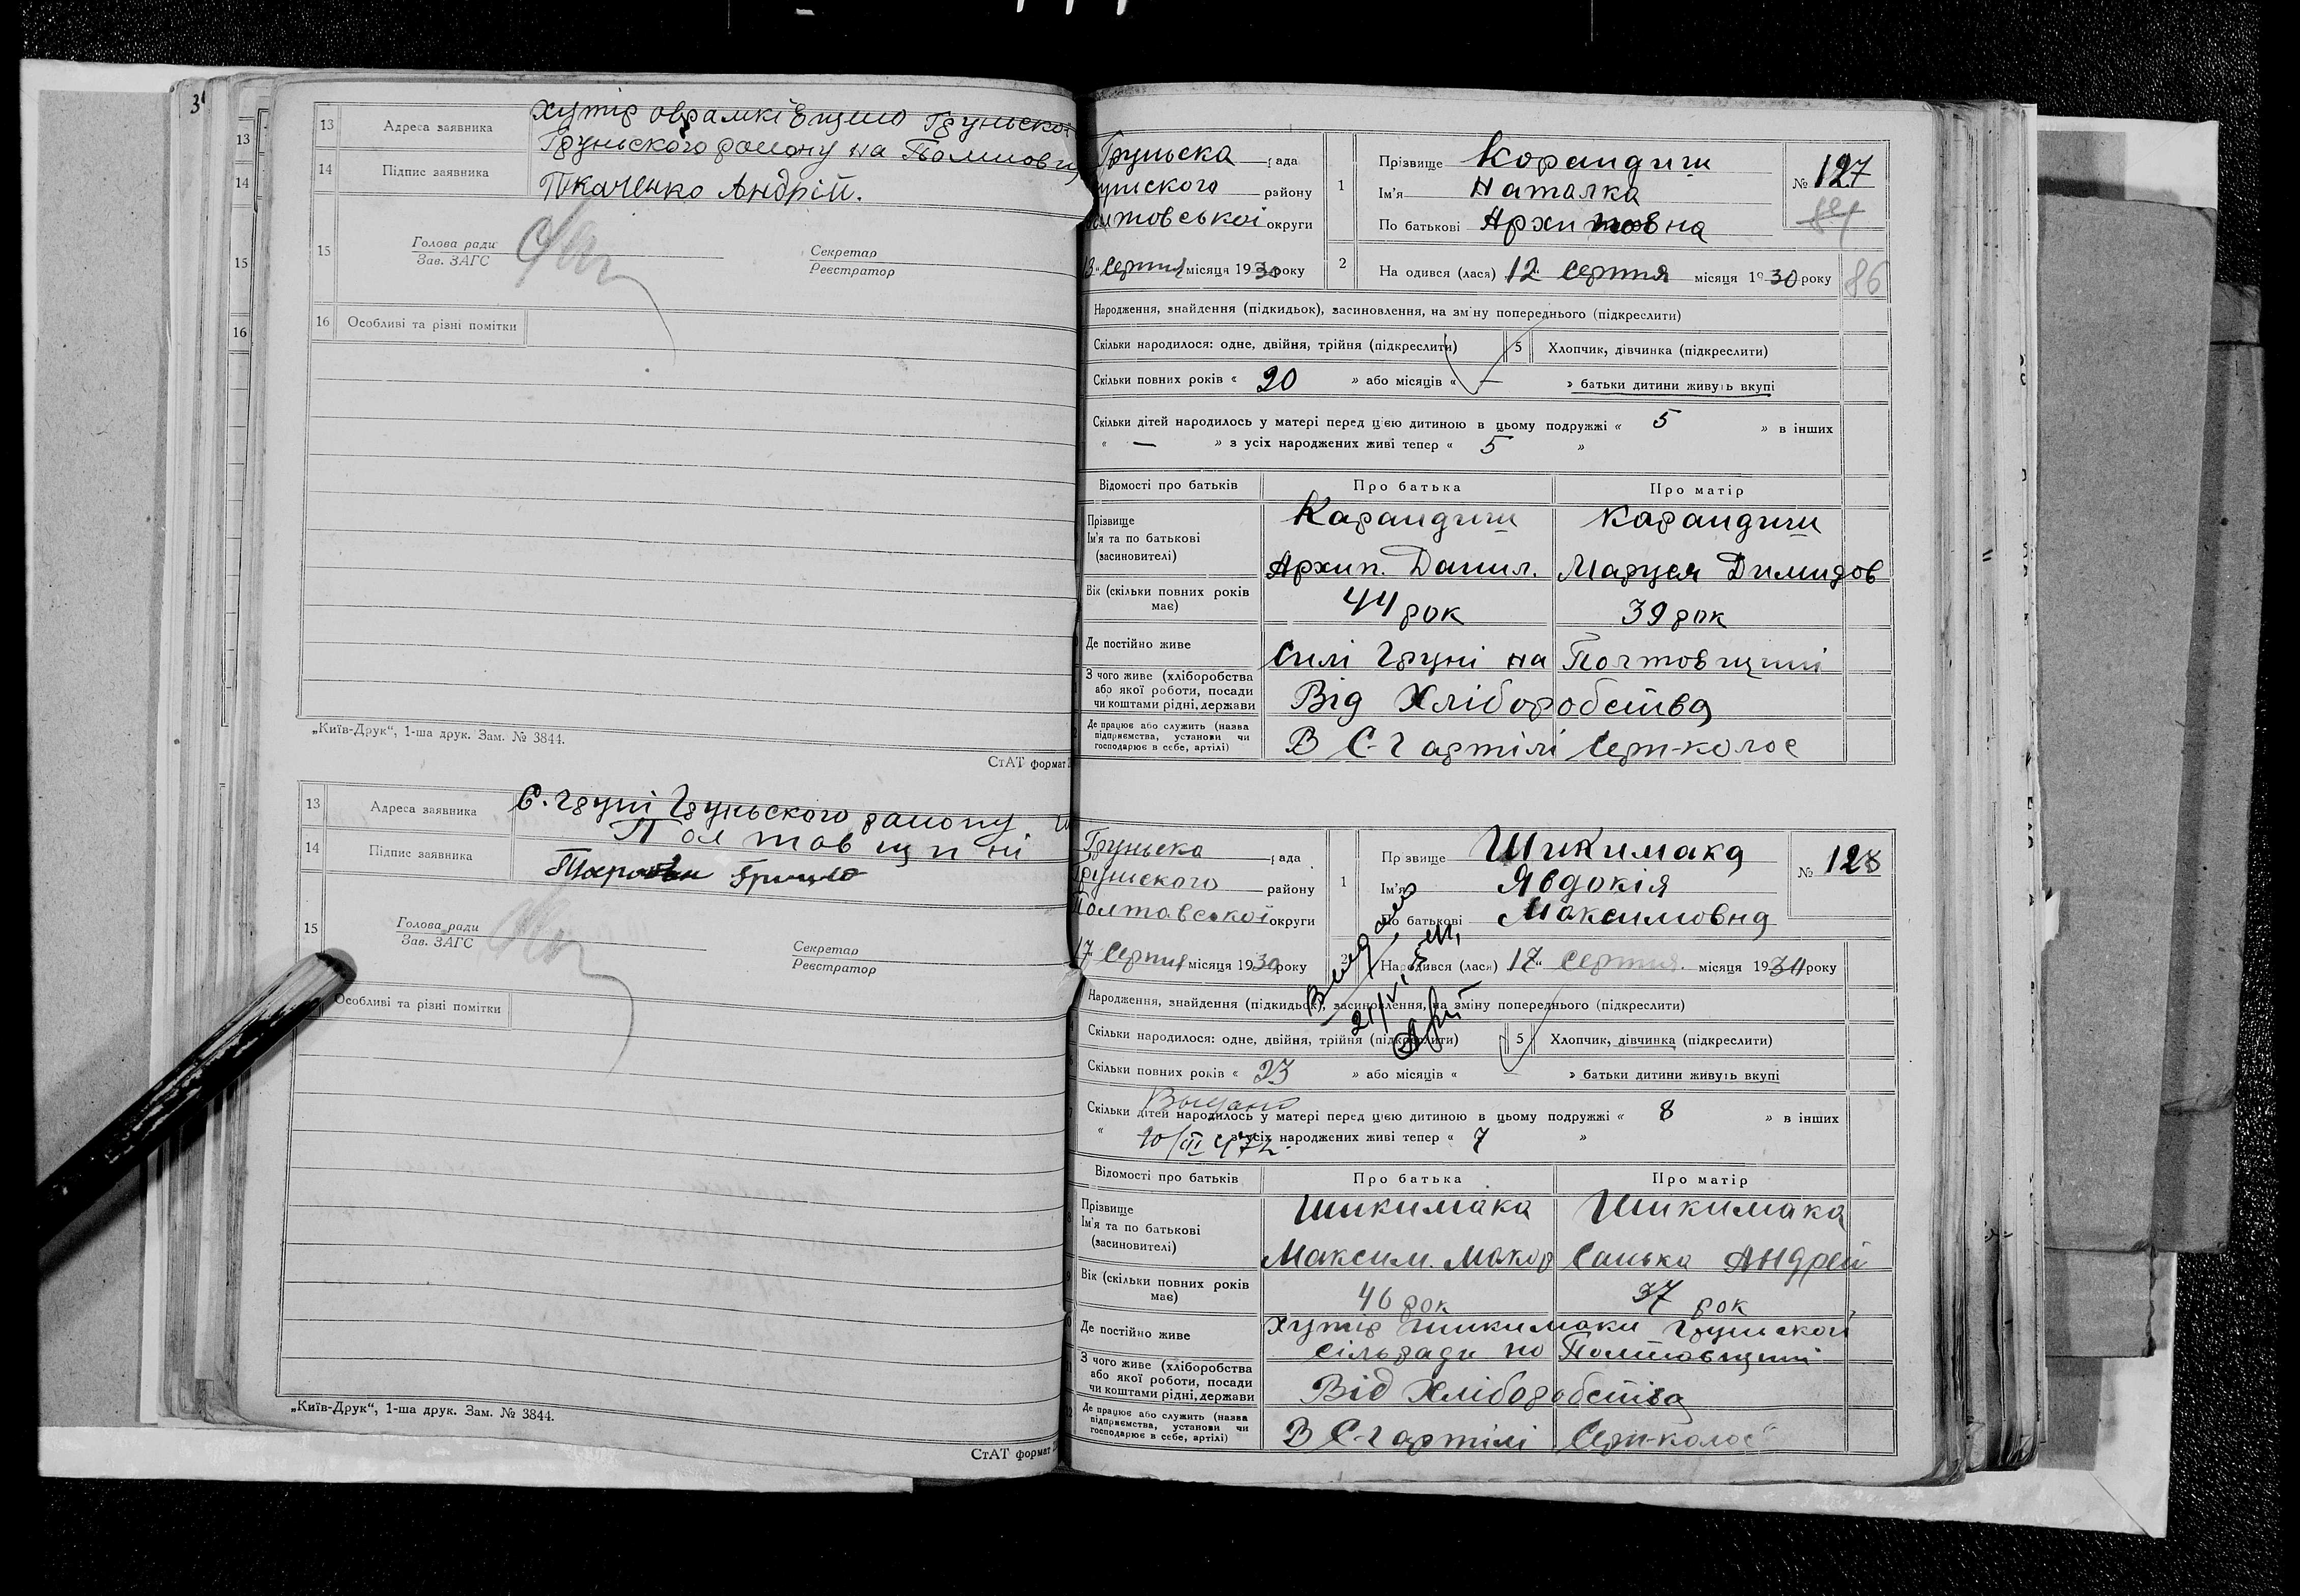 3
13
14
15
16
13 Адреса заявника Хутір Грунської
Грунського району на
14 Підпис заявника Ткаченко Андрій.
15 Голова ради
Зав. ЗАГС
Секретар
Реєстратор
16 Особливі та різні помітки
„Київ-Друк“, 1-ша друк. Зам. № 3844.
СтАТ формат
13 Адреса заявника С. Груні Грунського району
Полтавщині
14 Підпис заявника Грицько
15 Голова ради
Зав. ЗАГС
Секретар
Реєстратор
Особливі та різні помітки
„Київ-Друк“, 1-ша друк. Зам. № 3844.
СтАТ формат
Грунська рада
району
округи
1 Прізвище Корандиш
Ім'я Наталка
По батькові Архиповна
№ 127
86
13 Серпня місяця 1930 року
2 На одився (лася) 12 Серпня місяця 1930 року
Народження, знайдення (підкидьок), засиновлення, на зміну попереднього (підкреслити)
Скільки народилося: одне, двійня, трійня (підкреслити) 5 Хлопчик, дівчинка (підкреслити)
Скільки повних років « 20 » або місяців « — » батьки дитини живуть вкупі
Скільки дітей народилось у матері перед цією дитиною в цьому подружжі « 5 » в інших
« — » з усіх народжених живі тепер « 5 »
Відомості про батьків Про батька Про матір
Прізвище Карандиш Карандиш
Ім'я та по батькові
(засиновителі) Архип. Данил. Маруся Димидов
Вік (скільки повних років має) 44 рок 39 рок
Де постійно живе Силі Груні на Полтовщині
З чого живе (хліборобства
або якої роботи, посади
чи коштами рідні, держави Від Хліборобства
Де працює або служить (назва
підприємства, установи чи
господарює в себе, артілі) В С-Г артілі Серп-колос
Грунська рада
Грунського району
Полтавської округи
1 Пр звище Шикимака
Ім'я Явдокія
По батькові Максимовна
№ 128
17 Серпня місяця 1930 року
2 Народився (лася) 17 Серпня місяця 1930 року
Народження, знайдення (підкидьок), засиновлення, на зміну попереднього (підкреслити)
Скільки народилося: одне, двійня, трійня (підкреслити) 5 Хлопчик, дівчинка (підкреслити)
Скільки повних років « 23 » або місяців « — » батьки дитини живуть вкупі
Выдано
Скільки дітей народилось у матері перед цією дитиною в цьому подружжі « 8 » в інших
« з усіх народжених живі тепер « 7 »
Відомості про батьків Про батька Про матір
Прізвище Шикимака Шикимака
Ім'я та по батькові
(засиновителі) Максим. Макар Санька Андрей
Вік (скільки повних років має) 46 рок 37 рок
Де постійно живе Хутір Шикимаки Грунської
сільради по Полтовщині
З чого живе (хліборобства
або якої роботи, посади
чи коштами рідні, держави Від Хліборобства
Де працює або служить (назва
підприємства, установи чи
господарює в себе, артілі) В С-Г артілі Серп-колос"